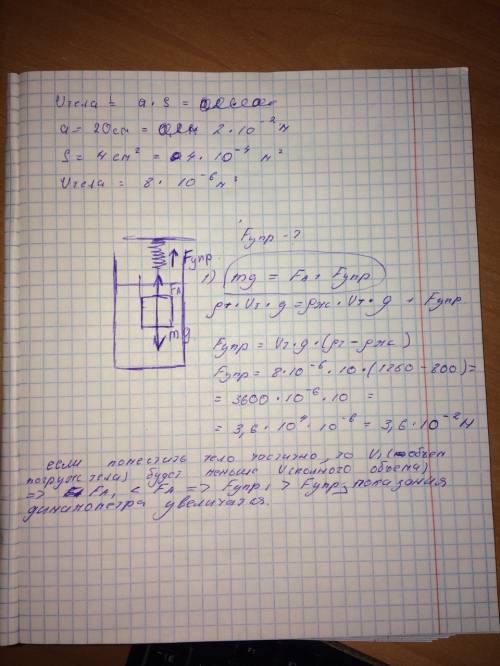 Vтела = a · S =
a = 20см = 2 · 10⁻² м
S = 4 см² = 4 · 10⁻⁴ м²
Vтела = 8 · 10⁻⁶ м³
Fупр - ?
Fупр
FA
mg
1) mg = FA + Fупр
ρт · Vт · g = ρж · Vт · g + Fупр
Fупр = Vт · g · (ρт - ρж)
Fупр = 8 · 10⁻⁶ · 10 · (1250 - 800) =
= 3600 · 10⁻⁶ · 10 =
= 3,6 · 10⁴ · 10⁻⁶ = 3,6 · 10⁻² Н
если поместить тело частично, то V₁ (объем
погруж тела) будет меньше V (полного объема)
=> FA₁ < FA => Fупр₁ > Fупр, показания
динамометра увеличатся.